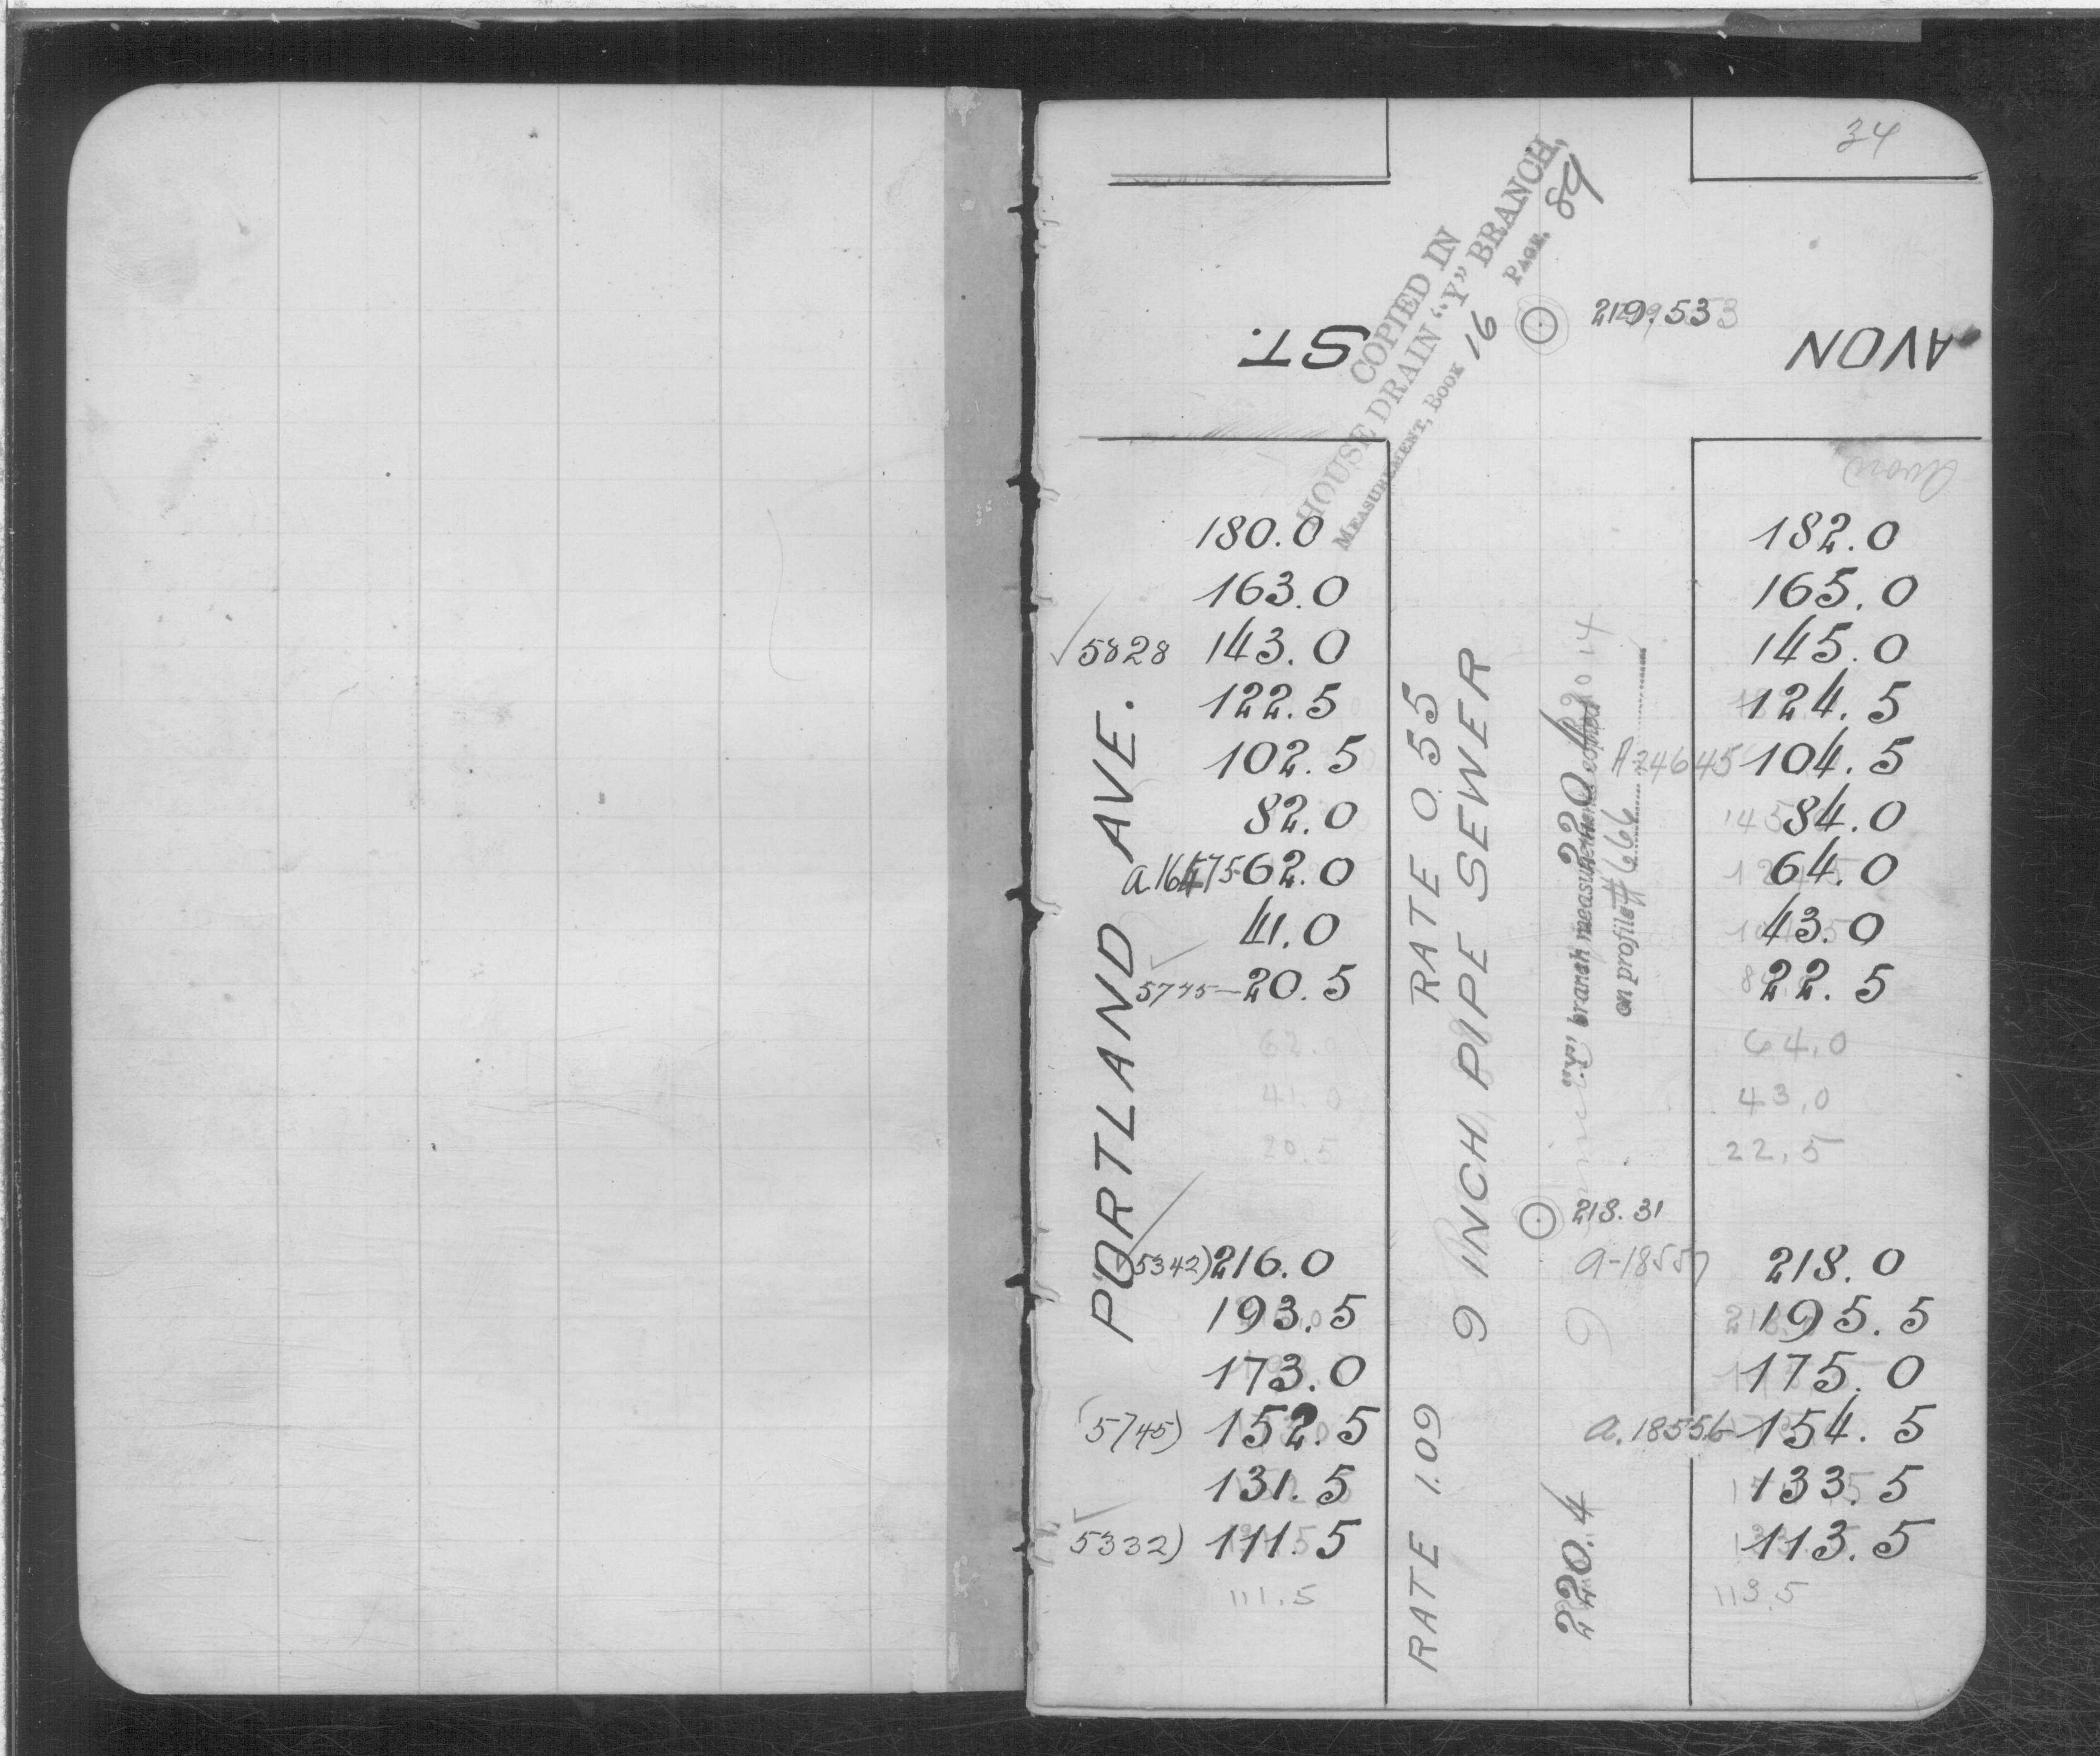 34
COPIED IN
HOUSE DRAIN "Y" BRANCH,
MEASUREMENT, BOOK 16 PAGE. 89
219.53
ST. AVON
Avon
180.0 182.0
163.0 165.0
5828 143.0 145.0
122.5 124.5
102.5 A 24645 104.5
82.0 84.0
a.16475 62.0 64.0
41.0 43.0
5745 — 20.5 22.5
62.0 64.0
41.0 43.0
20.5 22.5
PORTLAND AVE.
RATE 0.55
9 INCH PIPE SEWER
220.4
"Y" branch measurements copied
on profile #666
218.31
a-18557
5342) 216.0 218.0
193.5 195.5
173.0 175.0
(5745) 152.5 a.18556 154.5
131.5 133.5
5332) 111.5 113.5
111.5 113.5
RATE 1.09
220.4